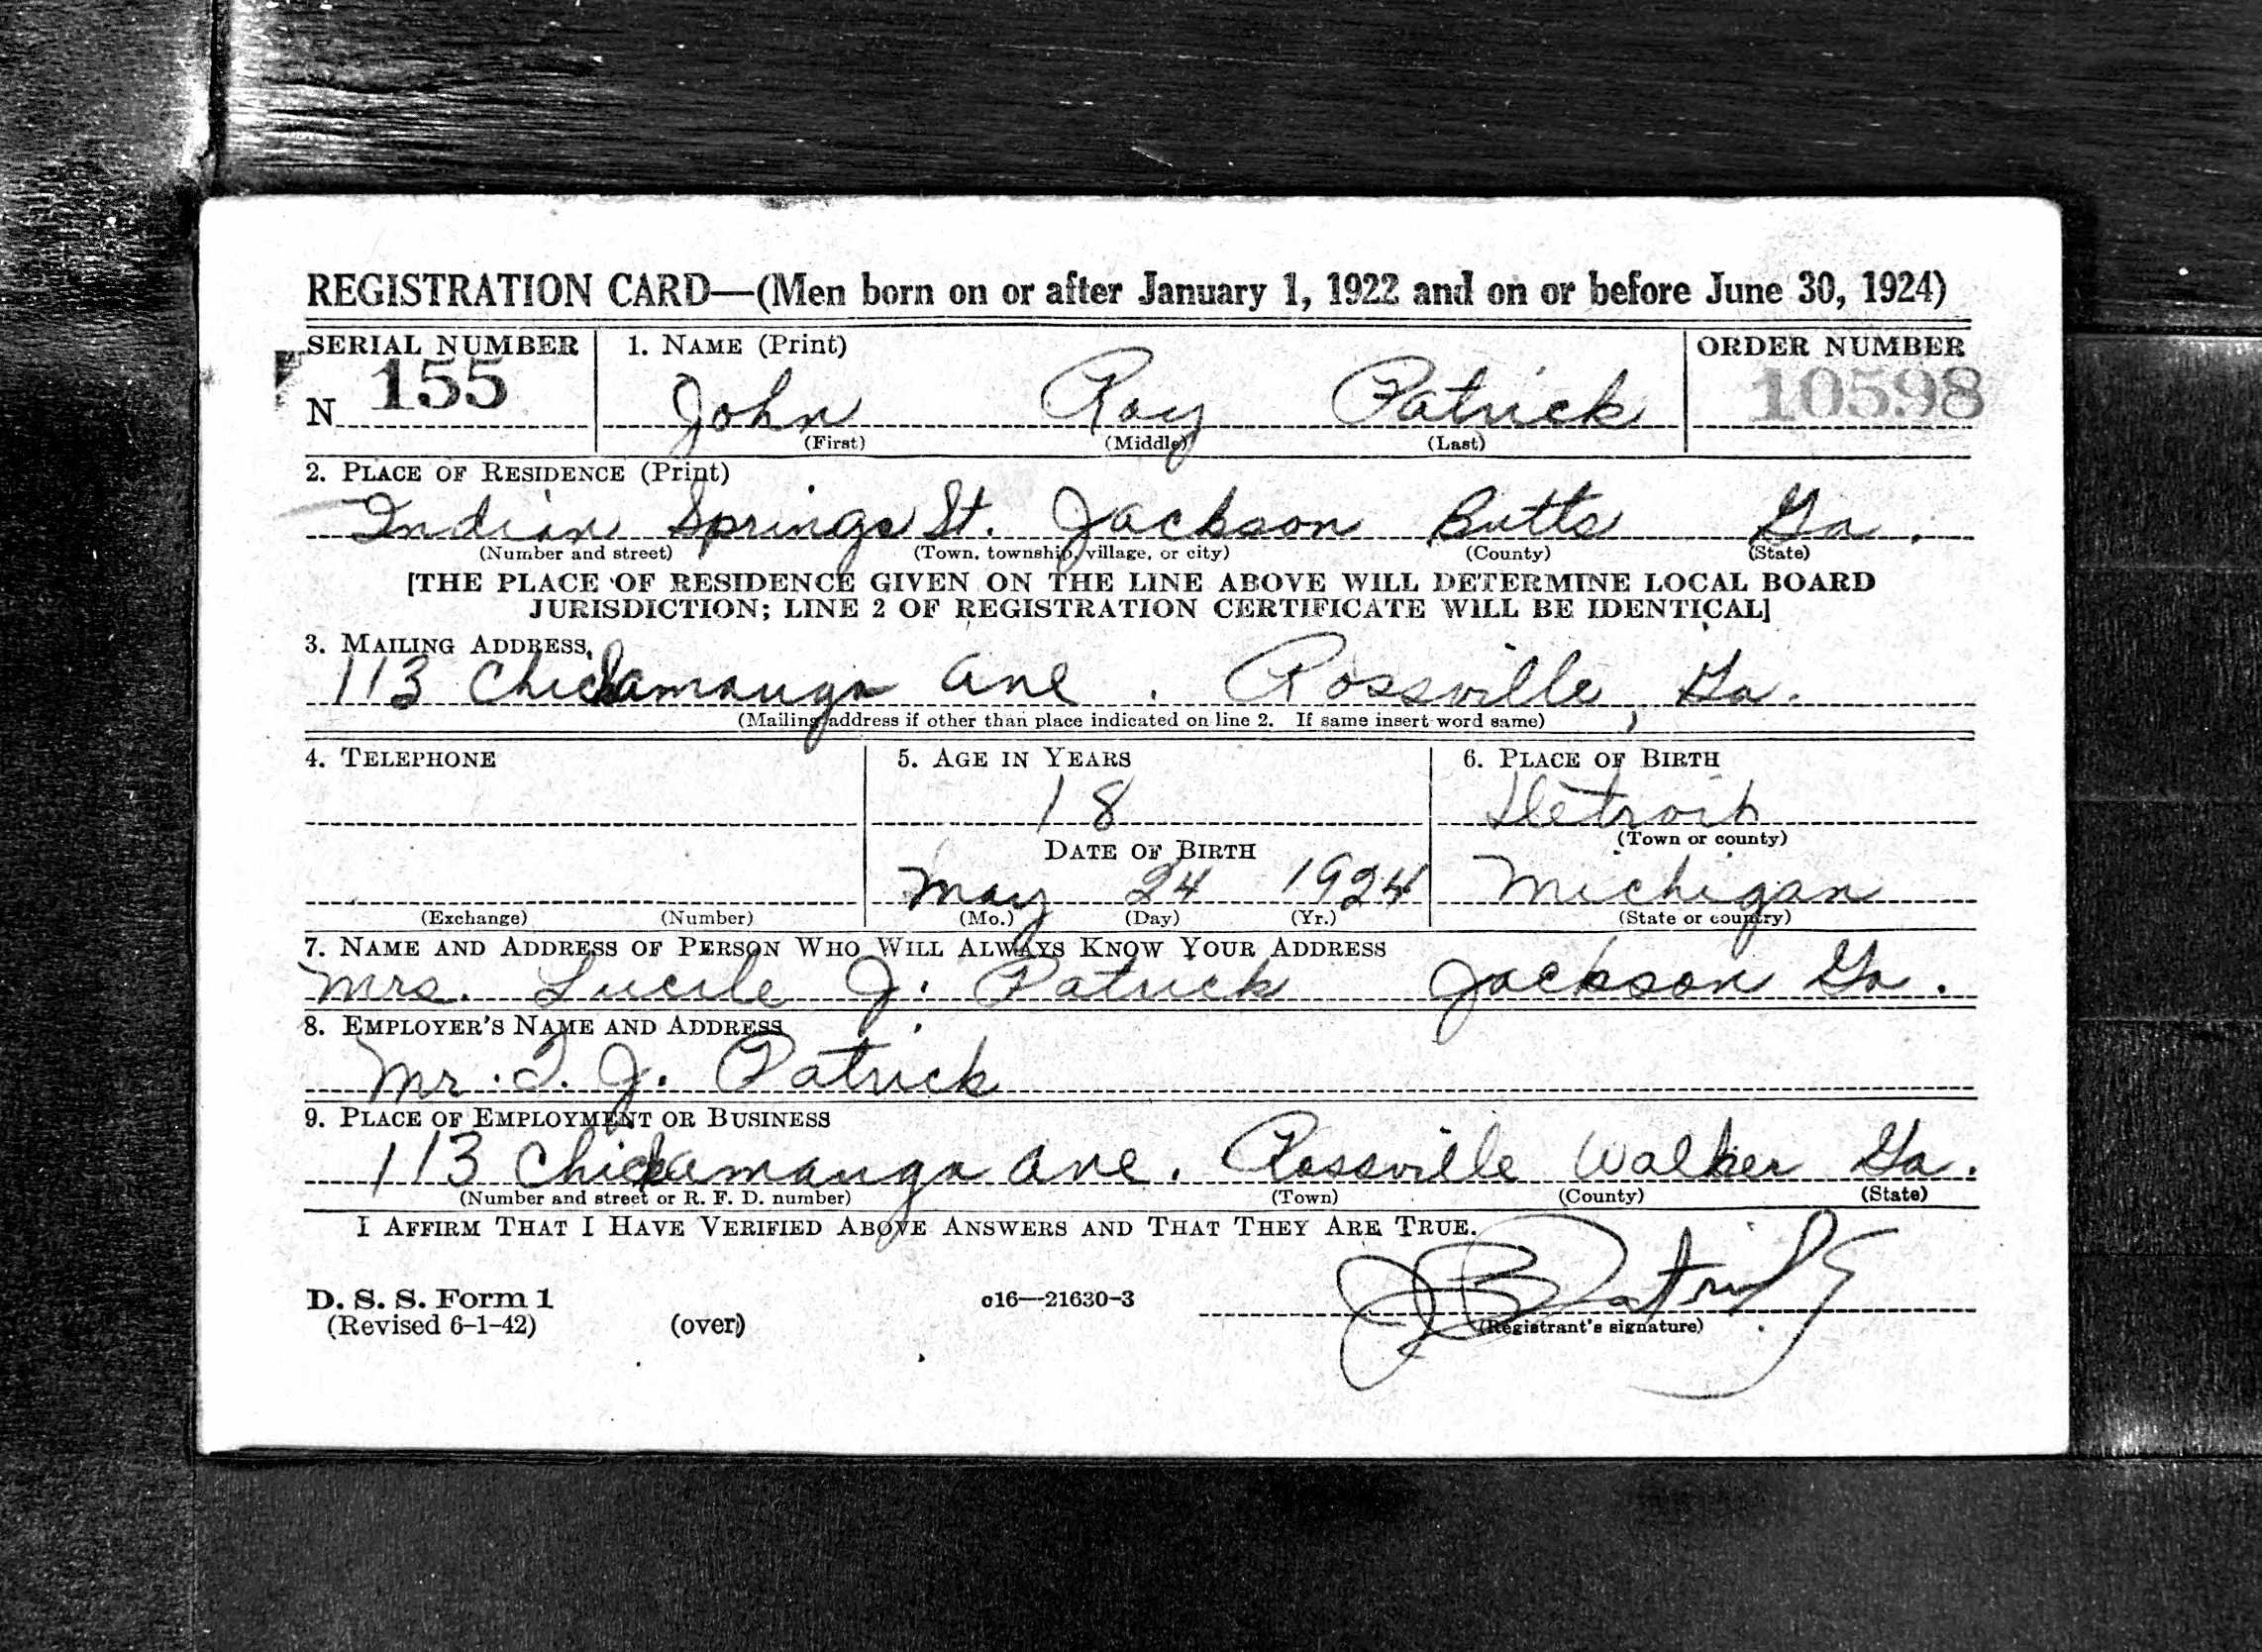 REGISTRATION CARD—(Men born on or after January 1, 1922 and on or before June 30, 1924)
SERIAL NUMBER 1. NAME (Print) ORDER NUMBER
N 155 John Roy Patrick 10598
(First) (Middle) (Last)
2. PLACE OF RESIDENCE (Print)
Indian Springs St. Jackson Butts Ga.
(Number and street) (Town, township, village, or city) (County) (State)
[THE PLACE OF RESIDENCE GIVEN ON THE LINE ABOVE WILL DETERMINE LOCAL BOARD
JURISDICTION; LINE 2 OF REGISTRATION CERTIFICATE WILL BE IDENTICAL]
3. MAILING ADDRESS
113 Chickamauga Ave. Rossville, Ga.
(Mailing address if other than place indicated on line 2. If same insert word same)
4. TELEPHONE 5. AGE IN YEARS 6. PLACE OF BIRTH
18 Detroit
(Town or county)
DATE OF BIRTH
May 24 1924 Michigan
(Exchange) (Number) (Mo.) (Day) (Yr.) (State or country)
7. NAME AND ADDRESS OF PERSON WHO WILL ALWAYS KNOW YOUR ADDRESS
Mrs. Lucile J. Patrick Jackson Ga.
8. EMPLOYER'S NAME AND ADDRESS
Mr. J. Patrick
9. PLACE OF EMPLOYMENT OR BUSINESS
113 Chickamauga Ave. Rossville Walker Ga.
(Number and street or R. F. D. number) (Town) (County) (State)
I AFFIRM THAT I HAVE VERIFIED ABOVE ANSWERS AND THAT THEY ARE TRUE.
D. S. S. Form 1
(Revised 6-1-42) (over) c16—21630-3 Patrick
(Registrant's signature)